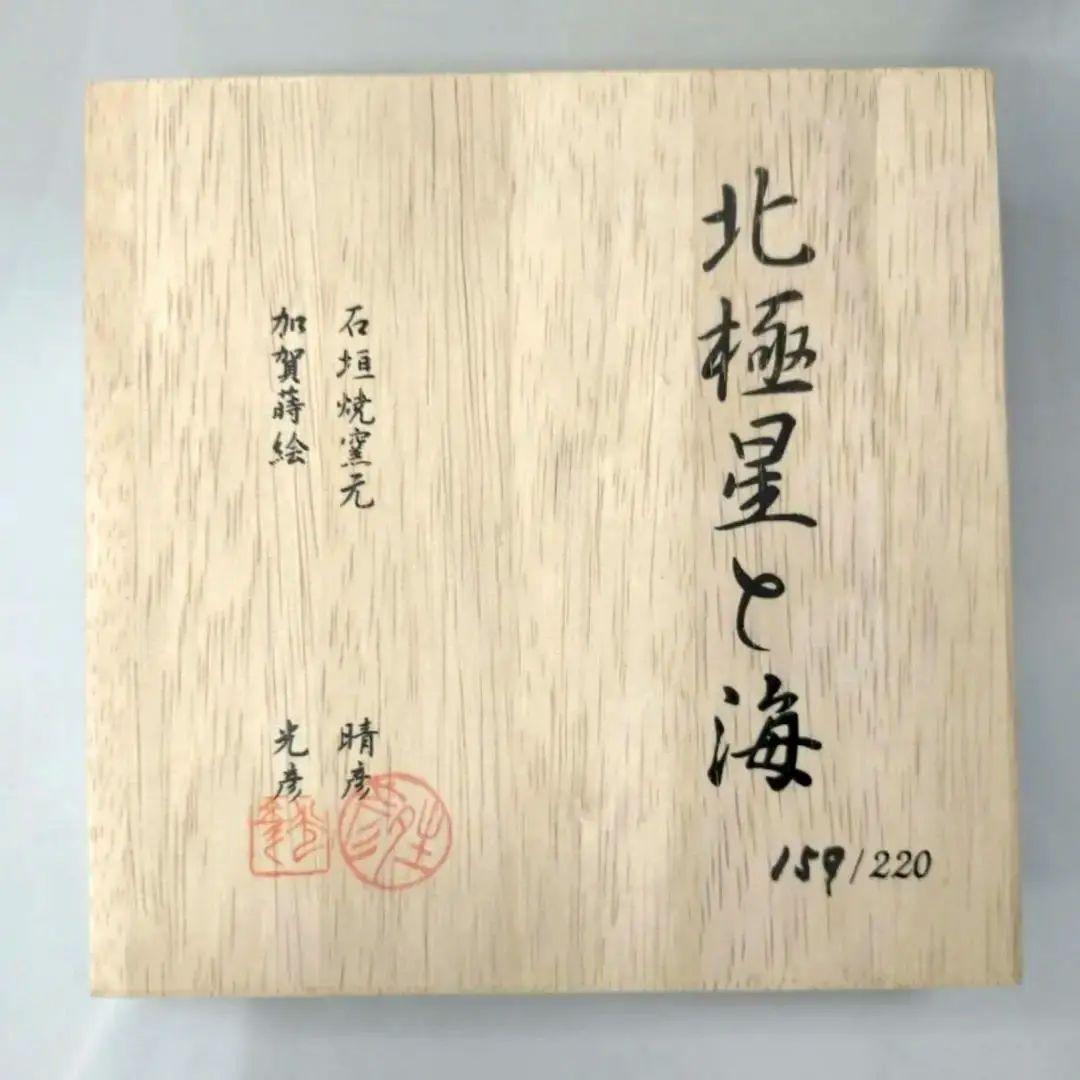 北極星と海
159/220
石垣焼窯元 晴彦
加賀蒔絵 光彦